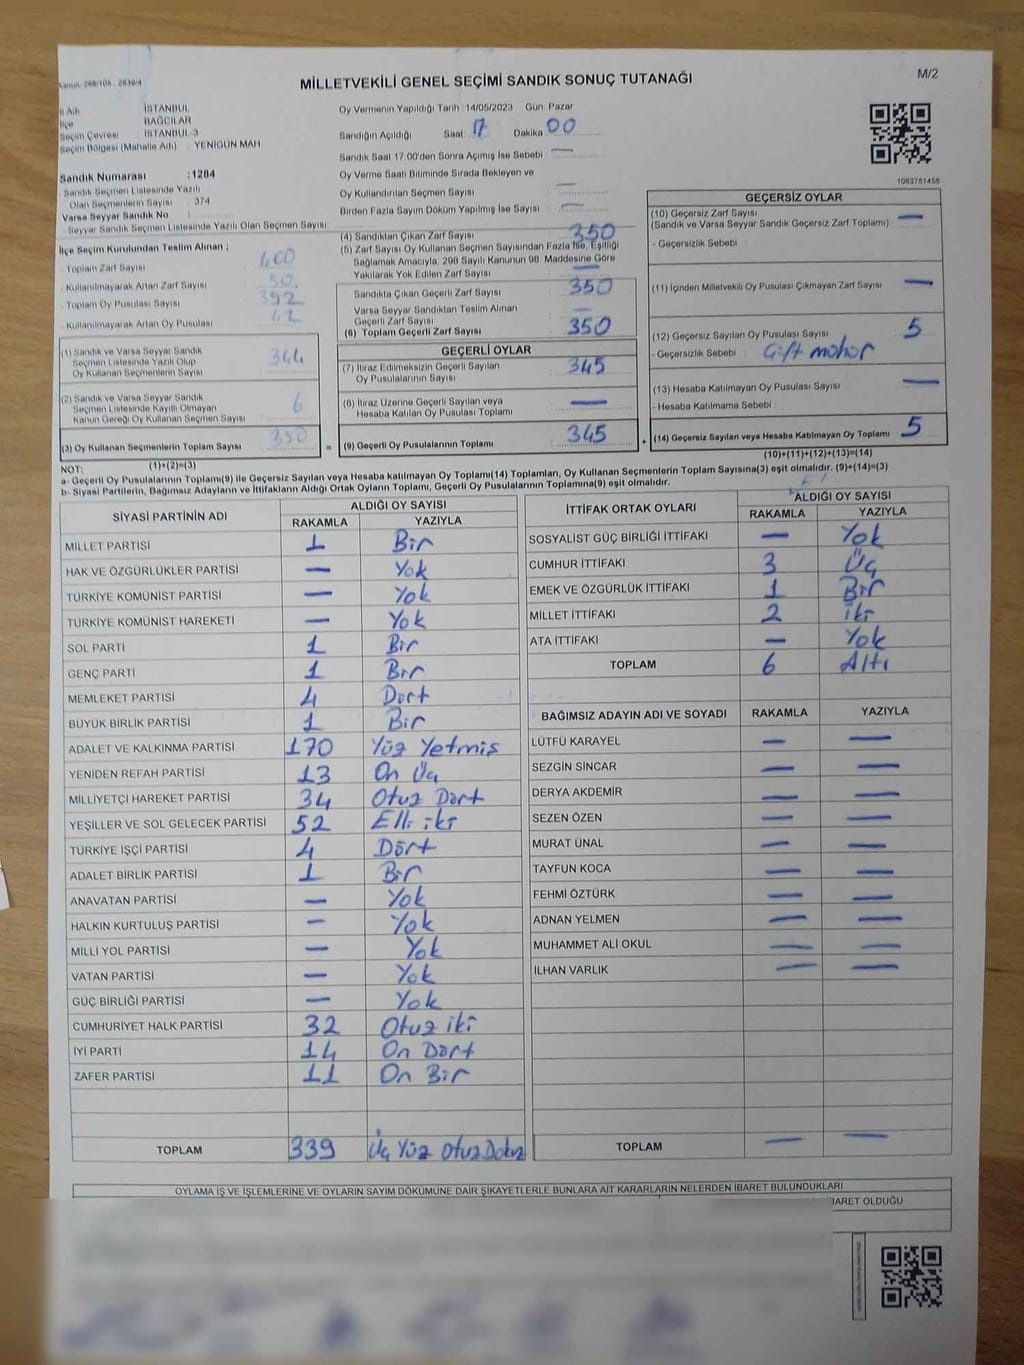 Kanun: 298/105 , 2839/4
MİLLETVEKİLİ GENEL SEÇİMİ SANDIK SONUÇ TUTANAĞI
M/2
İl Adı İSTANBUL
İlçe BAĞCILAR
Seçim Çevresi İSTANBUL-3
Seçim Bölgesi (Mahalle Adı) : YENİGÜN MAH
Sandık Numarası :1284
- Sandık Seçmen Listesinde Yazılı
Olan Seçmenlerin Sayısı : 374
Varsa Seyyar Sandık No :
- Seyyar Sandık Seçmen Listesinde Yazılı Olan Seçmen Sayısı:
İlçe Seçim Kurulundan Teslim Alınan ;
- Toplam Zarf Sayısı 400
- Kullanılmayarak Artan Zarf Sayısı 50
- Toplam Oy Pusulası Sayısı 392
- Kullanılmayarak Artan Oy Pusulası 42
(1) Sandık ve Varsa Seyyar Sandık
Seçmen Listesinde Yazılı Olup
Oy Kullanan Seçmenlerin Sayısı 344
(2) Sandık ve Varsa Seyyar Sandık
Seçmen Listesinde Kayıtlı Olmayan
Kanun Gereği Oy Kullanan Seçmen Sayısı 6
(3) Oy Kullanan Seçmenlerin Toplam Sayısı 350
(1)+(2)=(3)
Oy Vermenin Yapıldığı Tarih :14/05/2023 Gün: Pazar
Sandığın Açıldığı Saat: 17 Dakika: 00
Sandık Saat 17:00'den Sonra Açımış İse Sebebi : —
Oy Verme Saati Bitiminde Sırada Bekleyen ve
Oy Kullandırılan Seçmen Sayısı : —
Birden Fazla Sayım Döküm Yapılmış İse Sayısı : —
(4) Sandıktan Çıkan Zarf Sayısı : 350
(5) Zarf Sayısı Oy Kullanan Seçmen Sayısından Fazla İse, Eşitliği
Sağlamak Amacıyla, 298 Sayılı Kanunun 98. Maddesine Göre
Yakılarak Yok Edilen Zarf Sayısı : —
Sandıkta Çıkan Geçerli Zarf Sayısı : 350
Varsa Seyyar Sandıktan Teslim Alınan
Geçerli Zarf Sayısı : —
(6) Toplam Geçerli Zarf Sayısı : 350
GEÇERLİ OYLAR
(7) İtiraz Edilmeksizin Geçerli Sayılan
Oy Pusulalarının Sayısı : 345
(8) İtiraz Üzerine Geçerli Sayılan veya
Hesaba Katılan Oy Pusulası Toplamı : —
= (9) Geçerli Oy Pusulalarının Toplamı : 345
1083781456
GEÇERSİZ OYLAR
(10) Geçersiz Zarf Sayısı : —
(Sandık ve Varsa Seyyar Sandık Geçersiz Zarf Toplamı)
- Geçersizlik Sebebi :
(11) İçinden Milletvekili Oy Pusulası Çıkmayan Zarf Sayısı : —
(12) Geçersiz Sayılan Oy Pusulası Sayısı : 5
- Geçersizlik Sebebi : Çift mühür
(13) Hesaba Katılmayan Oy Pusulası Sayısı : —
- Hesaba Katılmama Sebebi :
+ (14) Geçersiz Sayılan veya Hesaba Katılmayan Oy Toplamı : 5
(10)+(11)+(12)+(13)=(14)
NOT:
a- Geçerli Oy Pusulalarının Toplamı(9) ile Geçersiz Sayılan veya Hesaba katılmayan Oy Toplamı(14) Toplamları, Oy Kullanan Seçmenlerin Toplam Sayısına(3) eşit olmalıdır. (9)+(14)=(3)
b- Siyasi Partilerin, Bağımsız Adayların ve İttifakların Aldığı Ortak Oyların Toplamı, Geçerli Oy Pusulalarının Toplamına(9) eşit olmalıdır.
SİYASİ PARTİNİN ADI ALDIĞI OY SAYISI
RAKAMLA YAZIYLA
MİLLET PARTİSİ 1 Bir
HAK VE ÖZGÜRLÜKLER PARTİSİ — Yok
TÜRKİYE KOMÜNİST PARTİSİ — Yok
TÜRKİYE KOMÜNİST HAREKETİ — Yok
SOL PARTİ 1 Bir
GENÇ PARTİ 1 Bir
MEMLEKET PARTİSİ 4 Dört
BÜYÜK BİRLİK PARTİSİ 1 Bir
ADALET VE KALKINMA PARTİSİ 170 Yüz Yetmiş
YENİDEN REFAH PARTİSİ 13 On Üç
MİLLİYETÇİ HAREKET PARTİSİ 34 Otuz Dört
YEŞİLLER VE SOL GELECEK PARTİSİ 52 Elli iki
TÜRKİYE İŞÇİ PARTİSİ 4 Dört
ADALET BİRLİK PARTİSİ 1 Bir
ANAVATAN PARTİSİ — Yok
HALKIN KURTULUŞ PARTİSİ — Yok
MİLLİ YOL PARTİSİ — Yok
VATAN PARTİSİ — Yok
GÜÇ BİRLİĞİ PARTİSİ — Yok
CUMHURİYET HALK PARTİSİ 32 Otuz iki
İYİ PARTİ 14 On Dört
ZAFER PARTİSİ 11 On Bir
TOPLAM 339 Üç Yüz Otuz Dokuz
İTTİFAK ORTAK OYLARI ALDIĞI OY SAYISI
RAKAMLA YAZIYLA
SOSYALİST GÜÇ BİRLİĞİ İTTİFAKI — Yok
CUMHUR İTTİFAKI 3 Üç
EMEK VE ÖZGÜRLÜK İTTİFAKI 1 Bir
MİLLET İTTİFAKI 2 iki
ATA İTTİFAKI — Yok
TOPLAM 6 Altı
BAĞIMSIZ ADAYIN ADI VE SOYADI RAKAMLA YAZIYLA
LÜTFÜ KARAYEL — —
SEZGİN SİNCAR — —
DERYA AKDEMİR — —
SEZEN ÖZEN — —
MURAT ÜNAL — —
TAYFUN KOCA — —
FEHMİ ÖZTÜRK — —
ADNAN YELMEN — —
MUHAMMET ALİ OKUL — —
İLHAN VARLIK — —
TOPLAM — —
OYLAMA İŞ VE İŞLEMLERİNE VE OYLARIN SAYIM DÖKÜMÜNE DAİR ŞİKAYETLERLE BUNLARA AİT KARARLARIN NELERDEN İBARET BULUNDUKLARI
İBARET OLDUĞU